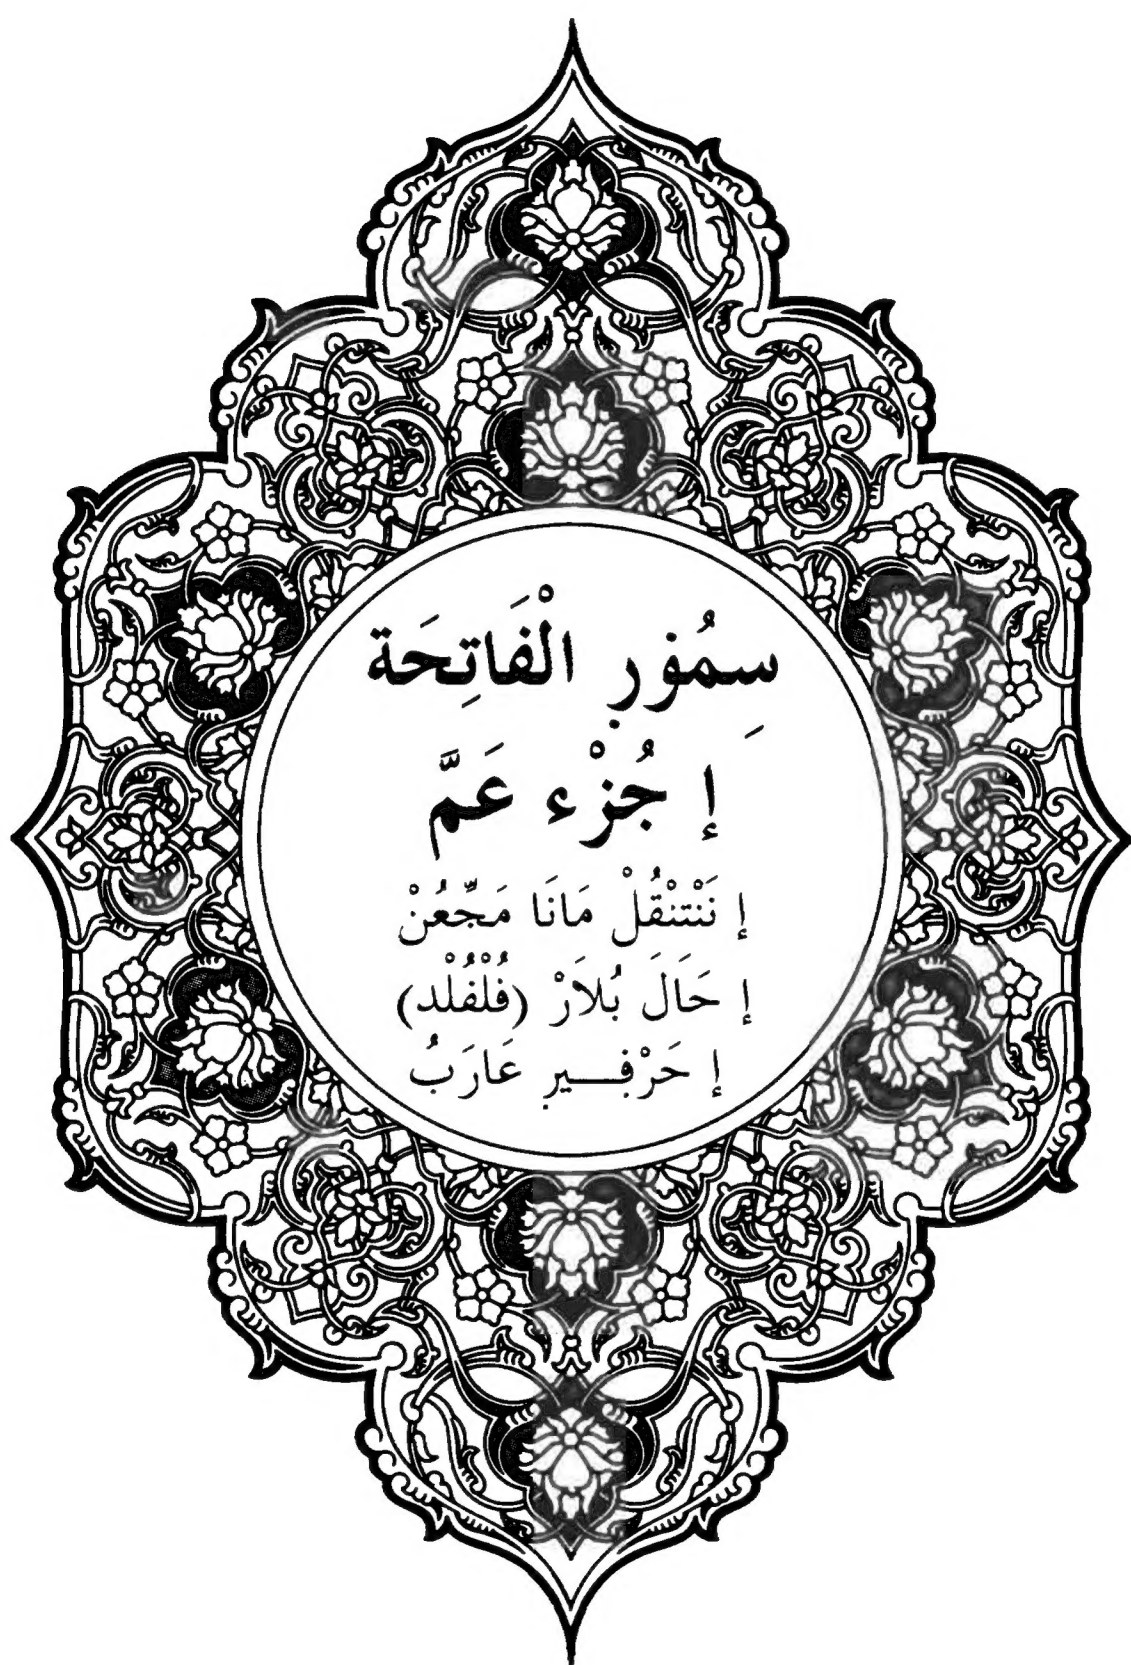 سِمُوْرِ الْفَاتِحَة
إ جُزْء عَمَّ
إ نَنْتِنْقُلْ مَانَا مَجِّعُنْ
إ حَالَ بُلَارْ (فُلْفُلْد)
إ حَرْفِيرِ عَارَبُ